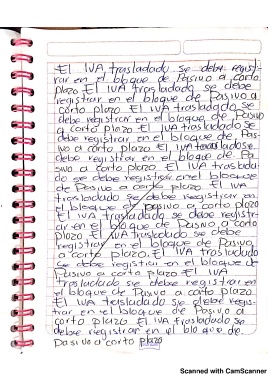 El IVA trasladado se debe regist-
rar en el bloque de Pasivo a corto
plazo El IVA trasladado se debe
registrar en el bloque de Pasivo a
corto plazo El IVA trasladado se
debe registrar en el bloque de Pasivo
a corto plazo El IVA trasladado se
debe registrar en el bloque de Pas-
ivo a corto plazo El IVA trasladado se
debe registrar en el bloque de Pa
sivo a corto plazo El IVA traslada
do se debe registrar en el bloque
de Pasivo a corto plazo. El IVA
trasladado se debe registrar en
el bloque de Pasivo a corto plazo
El IVA trasladado se debe registr-
ar en el bloque de Pasivo a corto
plazo. El IVA trasladado se debe
registrar en el bloque de Pasivo
a corto plazo. El IVA trasladado
se debe registrar en el bloque de
Pasivo a corto plazo El IVA
trasladado se debe registrar en
el bloque de Pasivo a corto plazo.
El IVA trasladado se debe regis-
trar en el bloque de Pasivo a
corto plazo El IVA trasladado se
debe registrar en el bloque de
Pasivo a corto plazo
Scanned with CamScanner